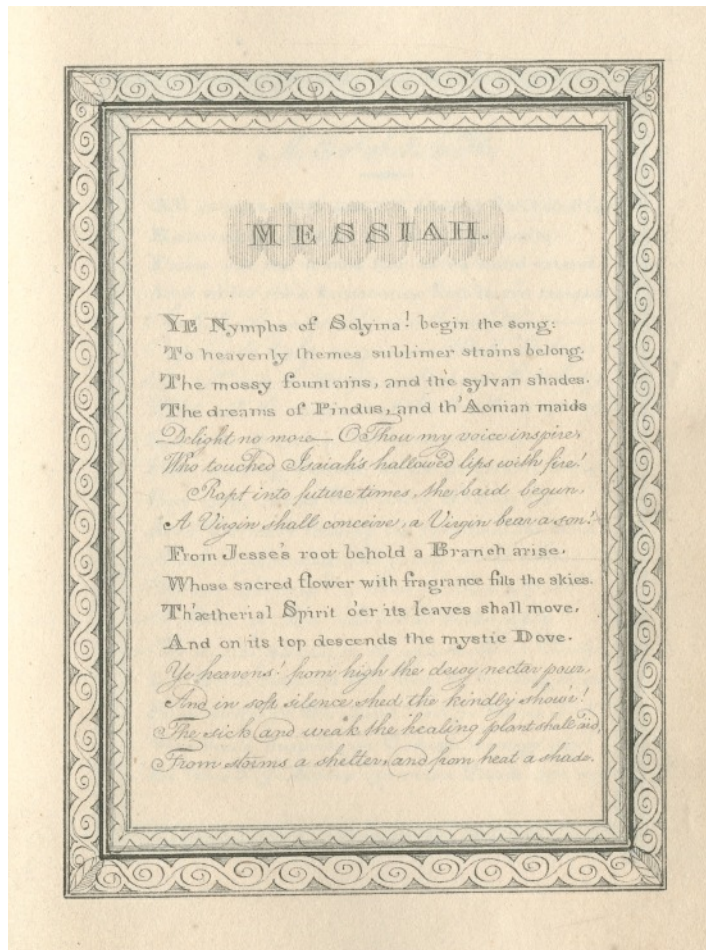 MESSIAH.
YE Nymphs of Solyma! begin the song:
To heavenly themes sublimer strains belong.
The mossy fountains, and the sylvan shades.
The dreams of Pindus, and th'Aonian maids
Delight no more — O Thou my voice inspire,
Who touched Isaiah's hallowed lips with fire!
Rapt into future times, the bard begun,
A Virgin shall conceive, a Virgin bear a son!
From Jesse's root behold a Branch arise,
Whose sacred flower with fragrance fills the skies.
Th'ætherial Spirit o'er its leaves shall move,
And on its top descends the mystic Dove.
Ye heavens! from high the dewy nectar pour,
And in soft silence shed the kindly show'r!
The sick and weak the healing plant shall aid,
From storms a shelter, and from heat a shade.